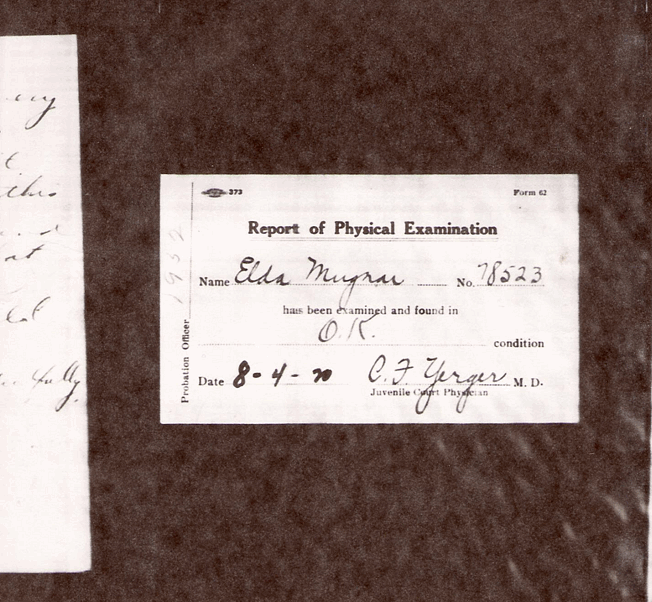 ery
t
this
at
ed
fully,
373
Form 62
Report of Physical Examination
Name Elda Mugnai No. 78523
has been examined and found in
O.K.
condition
Date 8-4-20 C. F. Yerger M. D.
Juvenile Court Physician
Probation Officer
1932